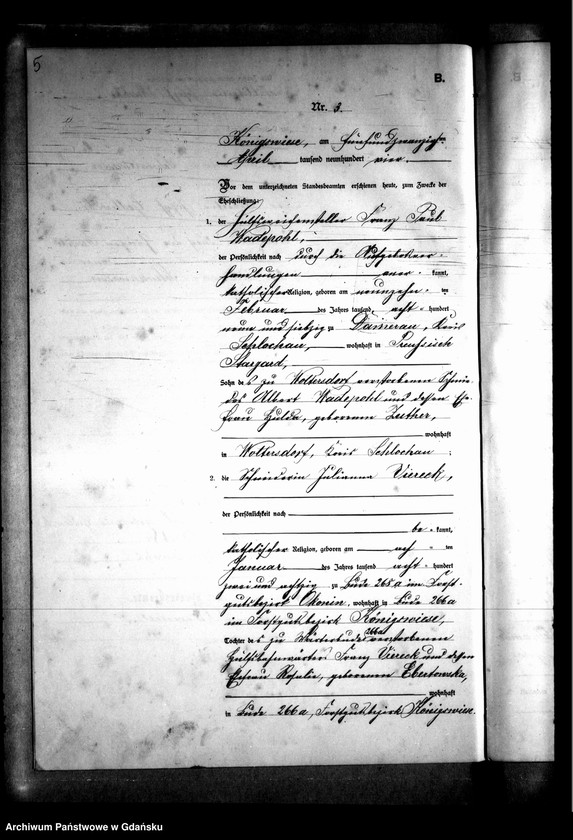 5
B.
Nr. 3.
Königswiese, am fünfundzwanzigsten
April tausend neunhundert vier.
Vor dem unterzeichneten Standesbeamten erschienen heute, zum Zwecke der
Eheschließung:
1. der Hülfsweichensteller Franz Paul
Wadepohl,
der Persönlichkeit nach durch die Aufgebotsver-
handlungen aner- kannt,
katholischer Religion, geboren am neunzehn- ten
Februar des Jahres tausend acht- hundert
neun und siebzig zu Damerau, Kreis
Schlochau, wohnhaft in Preussisch
Stargard,
Sohn des zu Woltersdorf verstorbenen Schmie-
des Albert Wadepohl und dessen Ehe-
frau Hulda, geborenen Zuther,
wohnhaft
in Woltersdorf, Kreis Schlochau;
2. die Schneiderin Julianna Viereck,
der Persönlichkeit nach
be- kannt,
katholischer Religion, geboren am ach- ten
Januar des Jahres tausend acht- hundert
zwei und achtzig zu Bude 268a im Forst-
gutsbezirk Okonin, wohnhaft in Bude 266a
im Forstgutsbezirk Königswiese,
Tochter des zu Wärterbude 266a verstorbenen
Hülfsbahnwärters Franz Viereck und dessen
Ehefrau Rosalie, geborenen Ebertowska,
wohnhaft
in Bude 266a, Forstgutsbezirk Königswiese.
Archiwum Państwowe w Gdańsku